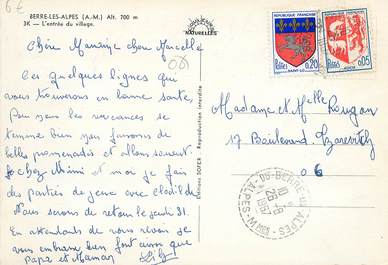 6€
BERRE-LES-ALPES (A.-M.) Alt. 700 m
3K — L'entrée du village.
NATURELLES
Chère Marraine cher Marcelle
Ces quelques lignes qui
vous trouverons en bonne santée,
Pour nous les vacances se
termine bien nous faisons de
belles promenades et allons souvent
chez Mimi et moi je fais
des parties de jeux avec Clotilde
Nous serons de retour le jeudi 31.
En attendants de vous revoir je
vous embrasse bien fort ainsi que
Papa et Maman
Reproduction interdite
Editions SOFER
REPUBLIQUE FRANÇAISE
Postes 0,20
SAINT-LO
REPUBLIQUE FRANÇAISE
Postes 0,05
AUCH
Madame et Melle Rougon
17 Boulevard Tzarevitch
06
BERRE-LES-ALPES
10 H
26-8
1967
ALPES-MMES